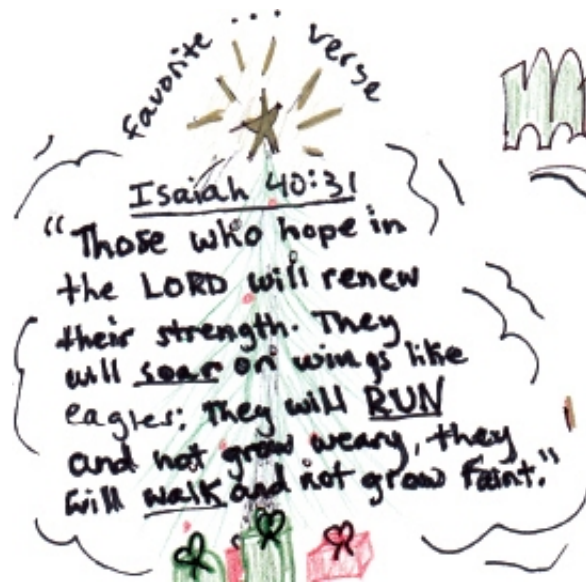 favorite ... verse
Isaiah 40:31
"Those who hope in
the LORD will renew
their strength. They
will soar on wings like
eagles; They will RUN
and not grow weary, they
will walk and not grow faint."